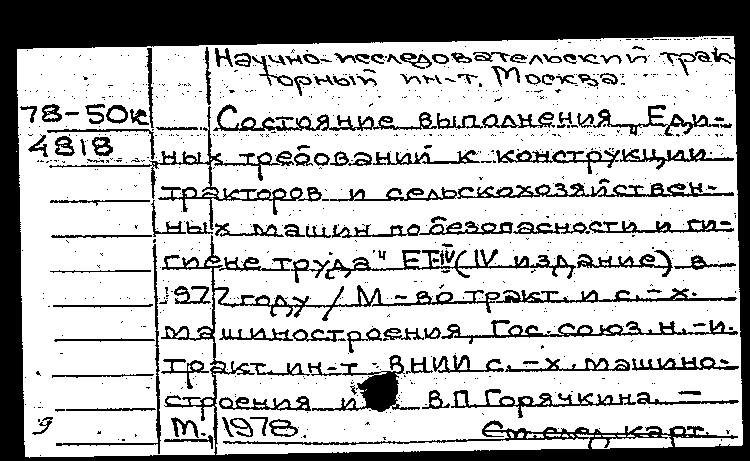 Научно-исследовательский трак-
торный ин-т. Москва.
78-50к
4818
Состояние выполнения „Еди-
ных требований к конструкции
тракторов и сельскохозяйствен-
ных машин по безопасности и ги-
гиене труда" ЕТ-IV (IV издание) в
1977 году / М-во тракт. и с.-х.
машиностроения, Гос. союз. н.-и.
тракт. ин-т ВНИИ с.-х. машино-
строения и В.П. Горячкина. —
М., 1978. См. след. карт.
9